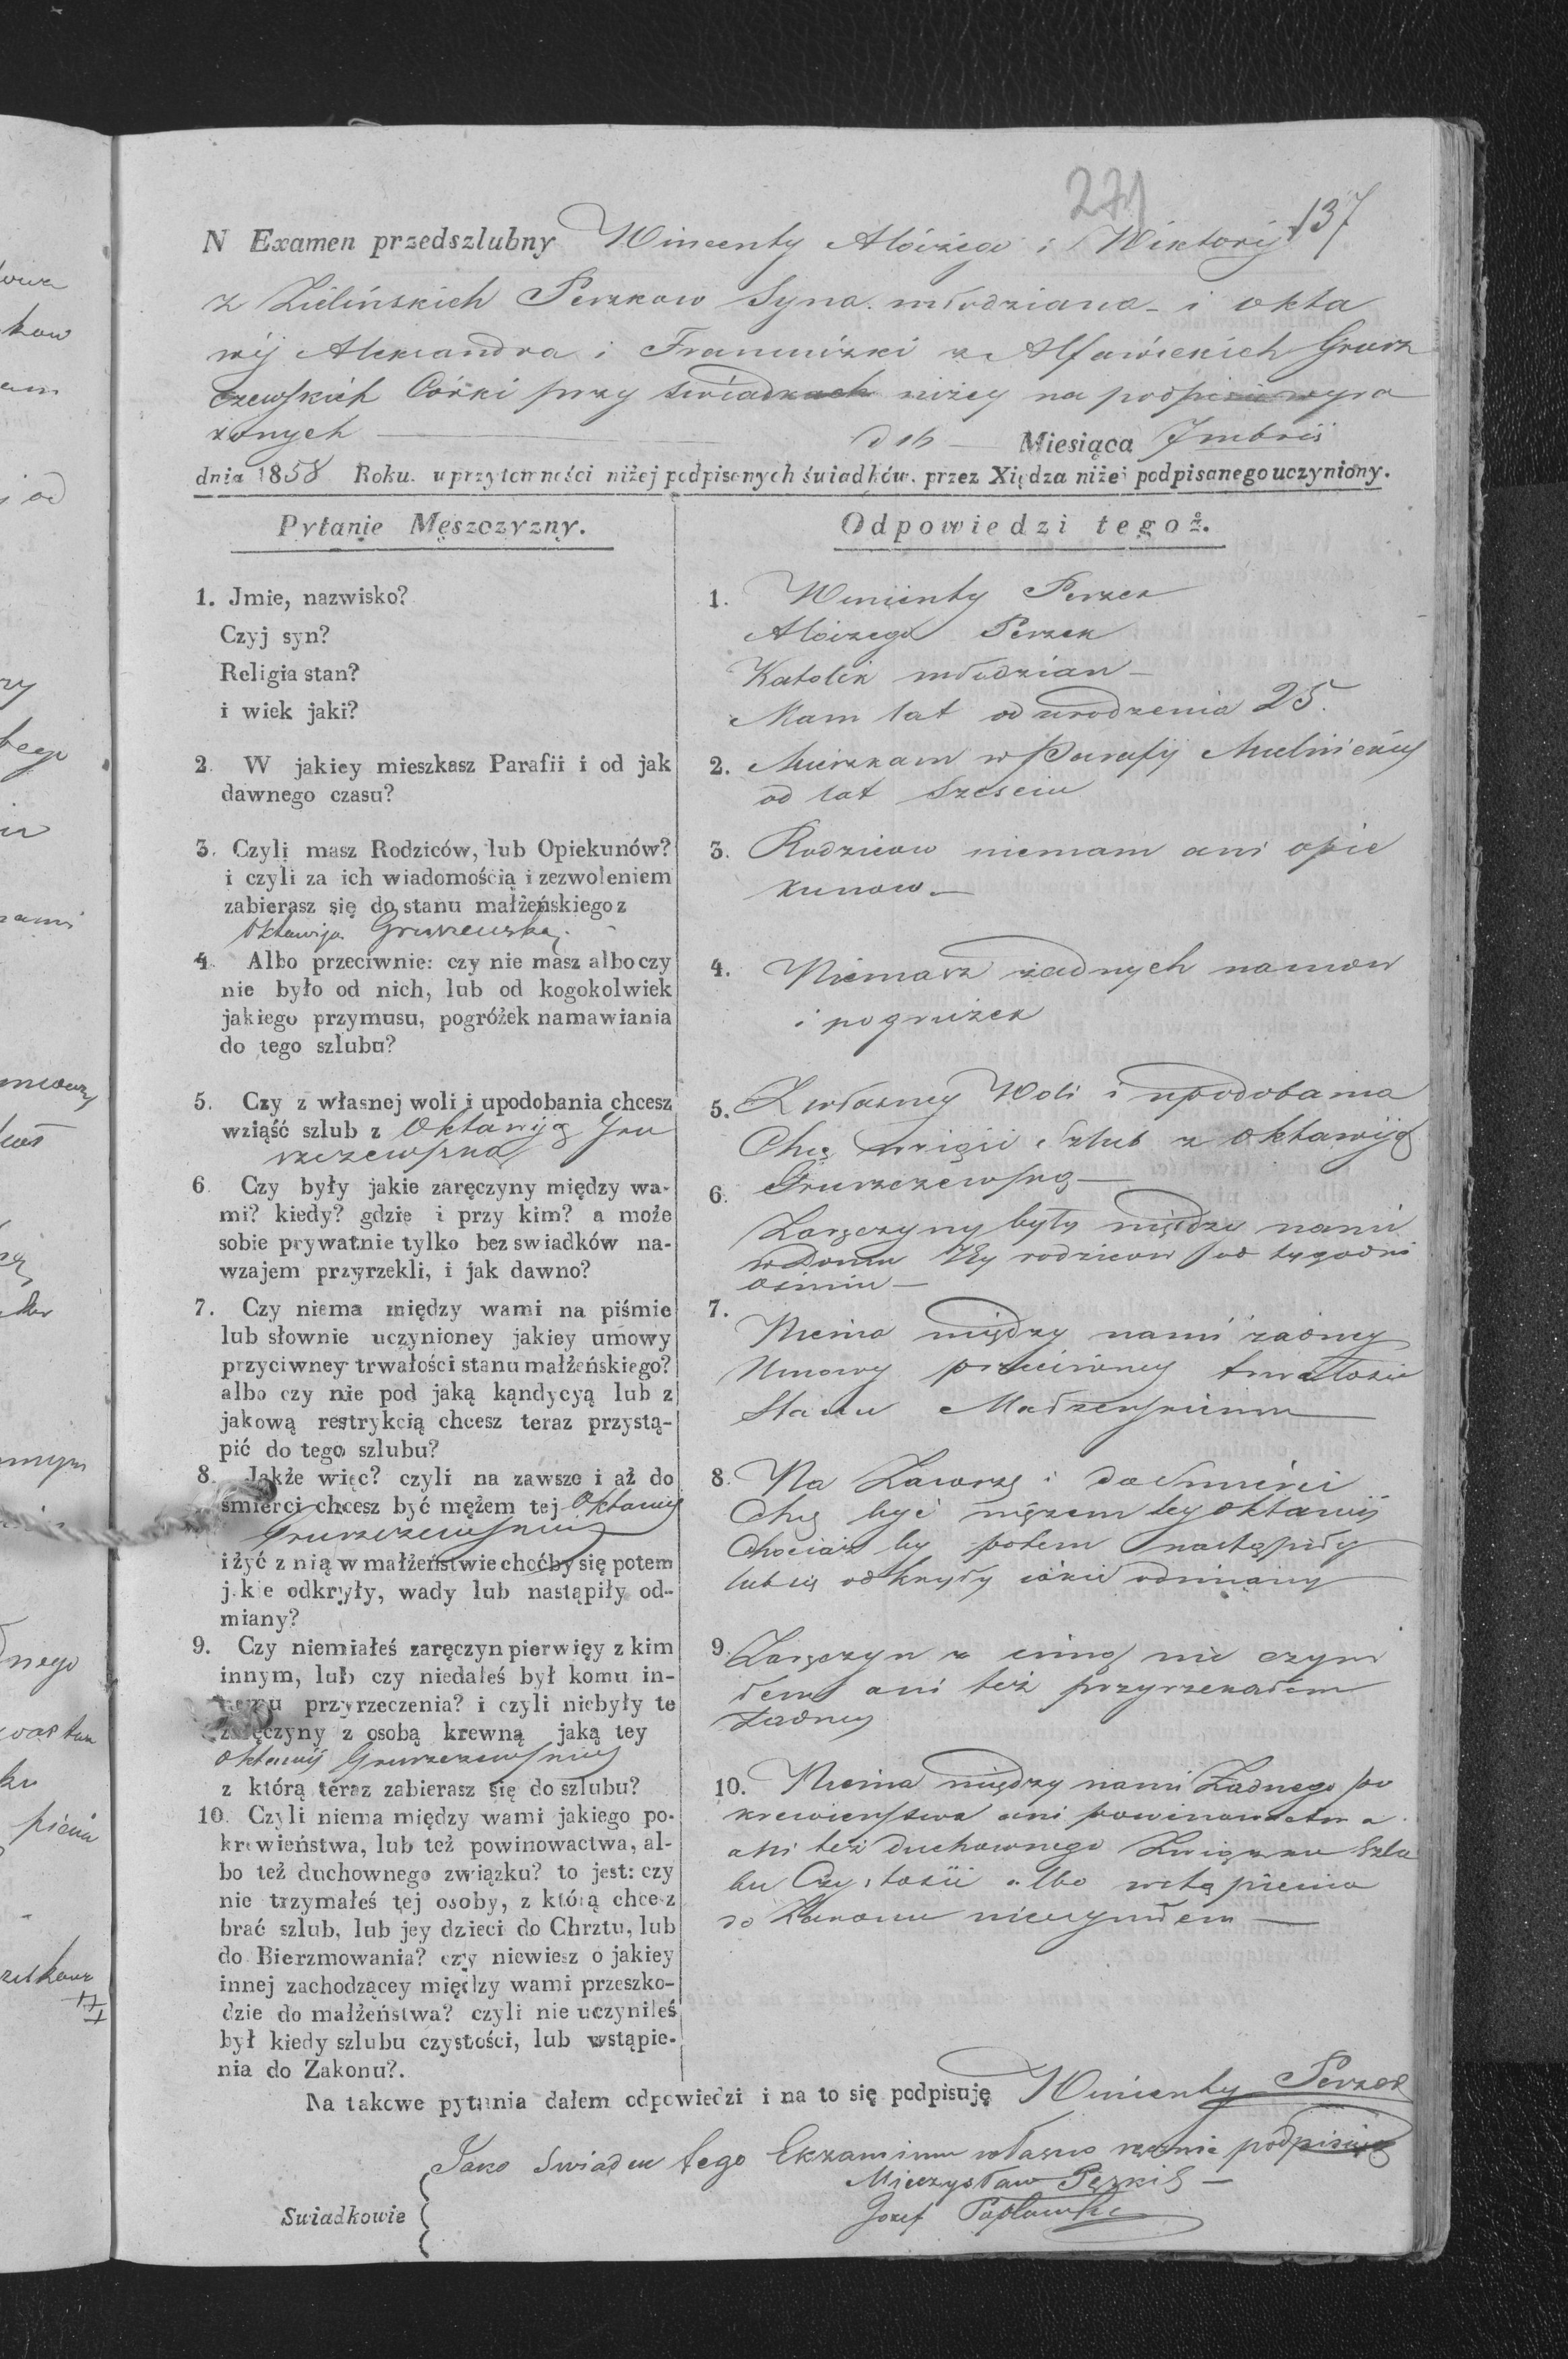 271
137
N Examen przedszlubny Wincenty Aloizego i Wiktorij
z Zielińskich Perzkow Syna młodziana i okta
wij Alexandra i Franciszki z Grusz
czewskich Córki przy swiadkach niżey na podpisie wyra
zonych d 16 Miesiąca 7mbris
dnia 1858 Roku. w przytomności niżej podpisanych świadków. przez Xiędza niżej podpisanego uczyniony.
Pytanie Męszczyzny.
Odpowiedzi tegoż.
1. Jmie, nazwisko?
Czyj syn?
Religia stan?
i wiek jaki?
1. Wincenty Perzek
Aloizego Perzek
Katolik młodzian
Mam lat od urodzenia 25.
2. W jakiey mieszkasz Parafii i od jak
dawnego czasu?
2. Mieszkam w Parafij
od lat Szesciu
3. Czyli masz Rodziców, lub Opiekunów?
i czyli za ich wiadomością i zezwoleniem
zabierasz się do stanu małżeńskiego z
Oktawija Gruszewską
3. Rodzicow niemam ani opie
kunow
4. Albo przeciwnie: czy nie masz albo czy
nie było od nich, lub od kogokolwiek
jakiego przymusu, pogróżek namawiania
do tego szlubu?
4. Niemasz żadnych namow
i pogrużek
5. Czy z własnej woli i upodobania chcesz
wziąść szlub z Oktawiją Gru
szczewską
5. Z własney Woli i upodobania
Chcę wziąść Szlub z Oktawiją
Gruszczewską
6. Czy były jakie zaręczyny między wa-
mi? kiedy? gdzie i przy kim? a może
sobie prywatnie tylko bez swiadków na-
wzajem przyrzekli, i jak dawno?
6.
Zaręczyny były między nami
w Domu Jey rodzicow od tygodni
osmiu
7. Czy niema między wami na piśmie
lub słownie uczynioney jakiey umowy
przyciwney trwałości stanu małżeńskiego?
albo czy nie pod jaką kąndycyą lub z
jakową restrykcią chcesz teraz przystą-
pić do tego szlubu?
7.
Niema między nami żadney
Umowy przeciwney trwałosci
Stanu
8. Jakże więc? czyli na zawsze i aż do
śmierci chcesz być mężem tej Oktawij
Gruszczewskiey
i żyć z nią w małżeństwie choćby się potem
jakie odkryły, wady lub nastąpiły od-
miany?
8. Na Zawszę i do Smierci
Chcę być mężem tey oktawij
Chociaż by potem nastąpiły
lub się odkryły iakie odmiany
9. Czy niemiałeś zaręczyn pierwięy z kim
innym, lub czy niedałeś był komu in-
nemu przyrzeczenia? i czyli niebyły te
zaręczyny z osobą krewną jaką tey
oktawij Gruszczewskiey
z którą teraz zabierasz się do szlubu?
9. Zaręczyn z inną nie czyni
łem ani też przyrzekałem
Żadney
10. Czyli niema między wami jakiego po-
krewieństwa, lub też powinowactwa, al-
bo też duchownego związku? to jest: czy
nie trzymałeś tej osoby, z którą chcesz
brać szlub, lub jey dzieci do Chrztu, lub
do Bierzmowania? czy niewiesz o jakiey
innej zachodzącey między wami przeszko-
dzie do małżeństwa? czyli nie uczyniłeś
był kiedy szlubu czystości, lub wstąpie-
nia do Zakonu?.
10. Niema między nami Żadnego po
krewienstwa ani powinowactwa
ani też duchownego Związku Szlu
bu Czystosci albo wstąpienia
do Zakonu nieczyniłem
Na takowe pytania dałem odpowiedzi i na to się podpisuję Wincenty Perzek
Jako Swiadek tego Ekzaminu własno ręcznie podpisuję
Mieczysław
Swiadkowie
Jozef Popławski